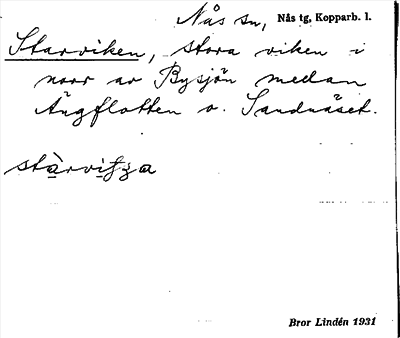 Nås sn, Nås tg, Kopparb. l.
Starviken, stora viken i
norr av Bysjön medan
Ångflotten o. Sandnäset.
Bror Lindén 1931